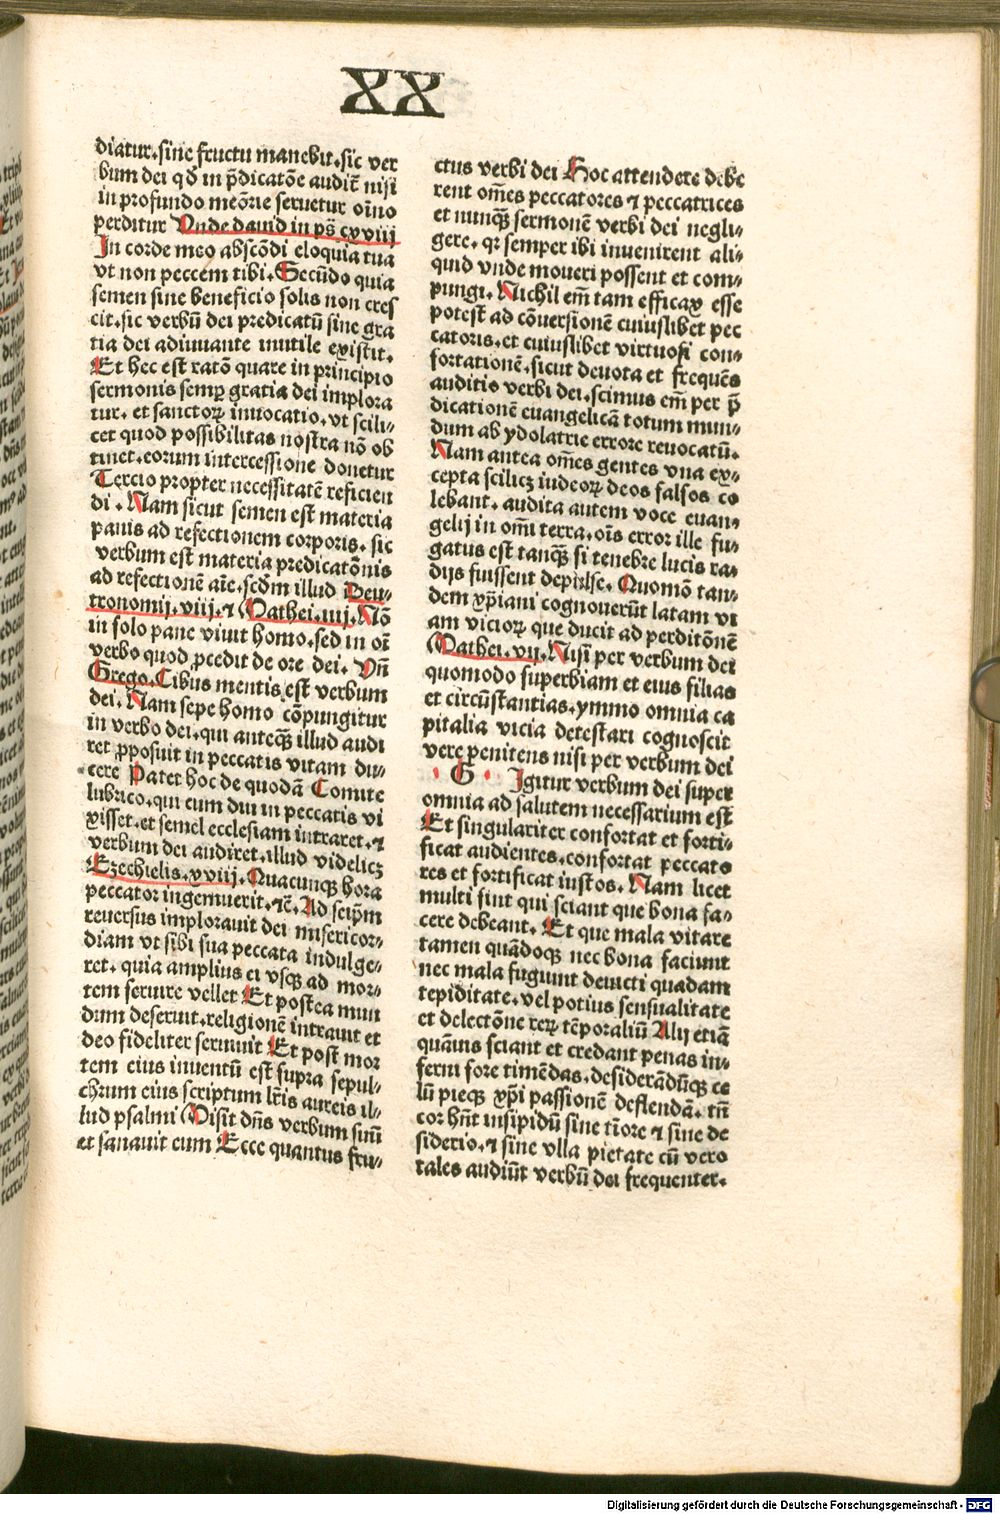 XX
diatur.sine fructu manebit.sic ver
bum dei qđ in p̄dicatōe audit̄ nisi
in profundo meōrie seruetur oīno
perditur Vnde dauid in ps̄ cxviij
In corde meo abscōdi eloquia tua
vt non peccem tibi.Secūdo quia
semen sine beneficio solis non cres
cit.sic verbū dei predicatū sine gra
tia dei adiuuante inutile existit.
Et hec est ratō quare in principio
sermonis semꝑ gratia dei implora
tur. et sanctoꝝ inuocatio.vt scili⸗
cet quod possibilitas nostra nō ob
tinet.eorum intercessione donetur
Tercio propter necessitatē reficien
di . Nam sicut semen est materia
panis ad refectionem corporis. sic
verbum est materia predicatōnis
ad refectionē aīe.scđm illud Deu⸗
tronomij.viij.⁊ Mathei.iiij.Nō
in solo pane viuit homo.sed in oī
verbo quod ꝓcedit de ore dei. Vn̄
Grego.Cibus mentis est verbum
dei. Nam sepe homo cōpungitur
in verbo dei.qui anteqꝫ illud audi
ret ꝓposuit in peccatis vitam du⸗
cere Patet hoc de quodā Comite
lubrico.qui cum diu in peccatis vi
xisset.et semel ecclesiam intraret.⁊
verbum dei audiret.illud videlicꝫ
Ezechielis.xviij.Quacunqꝫ hora
peccator ingemuerit.⁊c̄. Ad seip̄m
reuersus implorauit dei misericor⸗
diam vt sibi sua peccata indulge⸗
ret. quia amplius ei vsqꝫ ad mor⸗
tem seruire vellet Et postea mun
dum deseruit.religionē intrauit et
deo fideliter seruiuit Et post mor
tem eius inuentū est supra sepul⸗
chrum eius scriptum lr̄is aureis il⸗
lud psalmi Misit dn̄s verbum suū
et sanauit eum Ecce quantus fru⸗
ctus verbi dei Hoc attendere debe
rent om̄es peccatores ⁊ peccatrices
et nunqꝫ sermonē verbi dei negli⸗
gere. qꝛ semper ibi inuenirent ali⸗
quid vnde moueri possent et com⸗
pungi. Nichil em̄ tam efficax esse
potest ad cōuersionē cuiuslibet pec
catoris.et cuiuslibet virtuosi con⸗
fortationē.sicut deuota et frequēs
auditio verbi dei.scimus em̄ per p̄
dicationē euangelicā totum mun⸗
dum ab ydolatrie errore reuocatū.
Nam antea om̄es gentes vna ex⸗
cepta scilicꝫ iudeoꝝ deos falsos co
lebant. audita autem voce euan⸗
gelij in om̄i terra.oīs error ille fu⸗
gatus est tanqꝫ si tenebre lucis ra⸗
dijs fuissent depulse. Quomō tan⸗
dem xp̄iani cognouerūt latam vi
am vicioꝝ que ducit ad perditōnē
Mathei.vij.Nisi per verbum dei
quomodo superbiam et eius filias
et circūstantias.ymmo omnia ca
pitalia vicia detestari cognoscit
vere penitens nisi per verbum dei
G Igitur verbum dei super
omnia ad salutem necessarium est
Et singulariter confortat et forti⸗
ficat audientes.confortat peccato
res et fortificat iustos. Nam licet
multi sint qui sciant que bona fa⸗
cere debeant. Et que mala vitare
tamen quādoqꝫ nec bona faciunt
nec mala fugiunt deuicti quadam
tepiditate.vel potius sensualitate
et delectōne reꝝ tēporaliū Alij etiā
quāuis sciant et credant penas in⸗
ferni fore timēdas.desiderādūqꝫ ce
lū pieqꝫ xp̄i passionē deflendā. tn̄
cor hn̄t insipidū sine tiōre ⁊ sine de
siderio.⁊ sine vlla pietate cū vero
tales audiūt verbū dei frequenter.
Digitalisierung gefördert durch die Deutsche Forschungsgemeinschaft - DFG